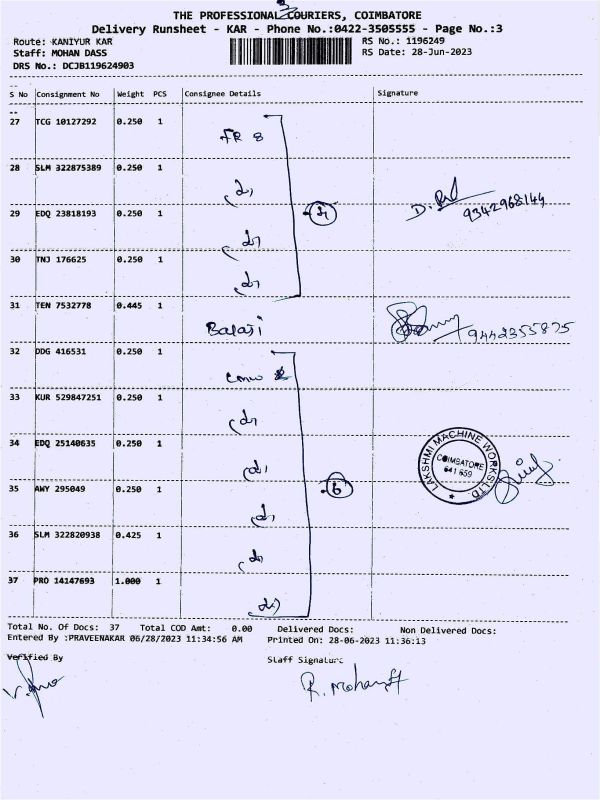 THE PROFESSIONAL COURIERS, COIMBATORE
Delivery Runsheet - KAR - Phone No.:0422-3505555 - Page No.:3
Route: KANIYUR KAR
RS No.: 1196249
Staff: MOHAN DASS
RS Date: 28-Jun-2023
DRS No.: DCJB119624903
S No Consignment No Weight PCS Consignee Details Signature
27 TCG 10127292 0.250 1
28 SLM 322875389 0.250 1
29 EDQ 23818193 0.250 1
D. 9342968144
30 TNJ 176625 0.250 1
31 TEN 7532778 0.445 1
Balaji 9442355875
32 DDG 416531 0.250 1
33 KUR 529847251 0.250 1
34 EDQ 25140635 0.250 1
LAKSHMI MACHINE WORKS LTD.
COIMBATORE
641 659
35 AWY 295049 0.250 1
6
36 SLM 322820938 0.425 1
37 PRO 14147693 1.000 1
Total No. Of Docs: 37 Total COD Amt: 0.00 Delivered Docs: Non Delivered Docs:
Entered By :PRAVEENAKAR 06/28/2023 11:34:56 AM Printed On: 28-06-2023 11:36:13
Verified By Staff Signature
R. Mohan